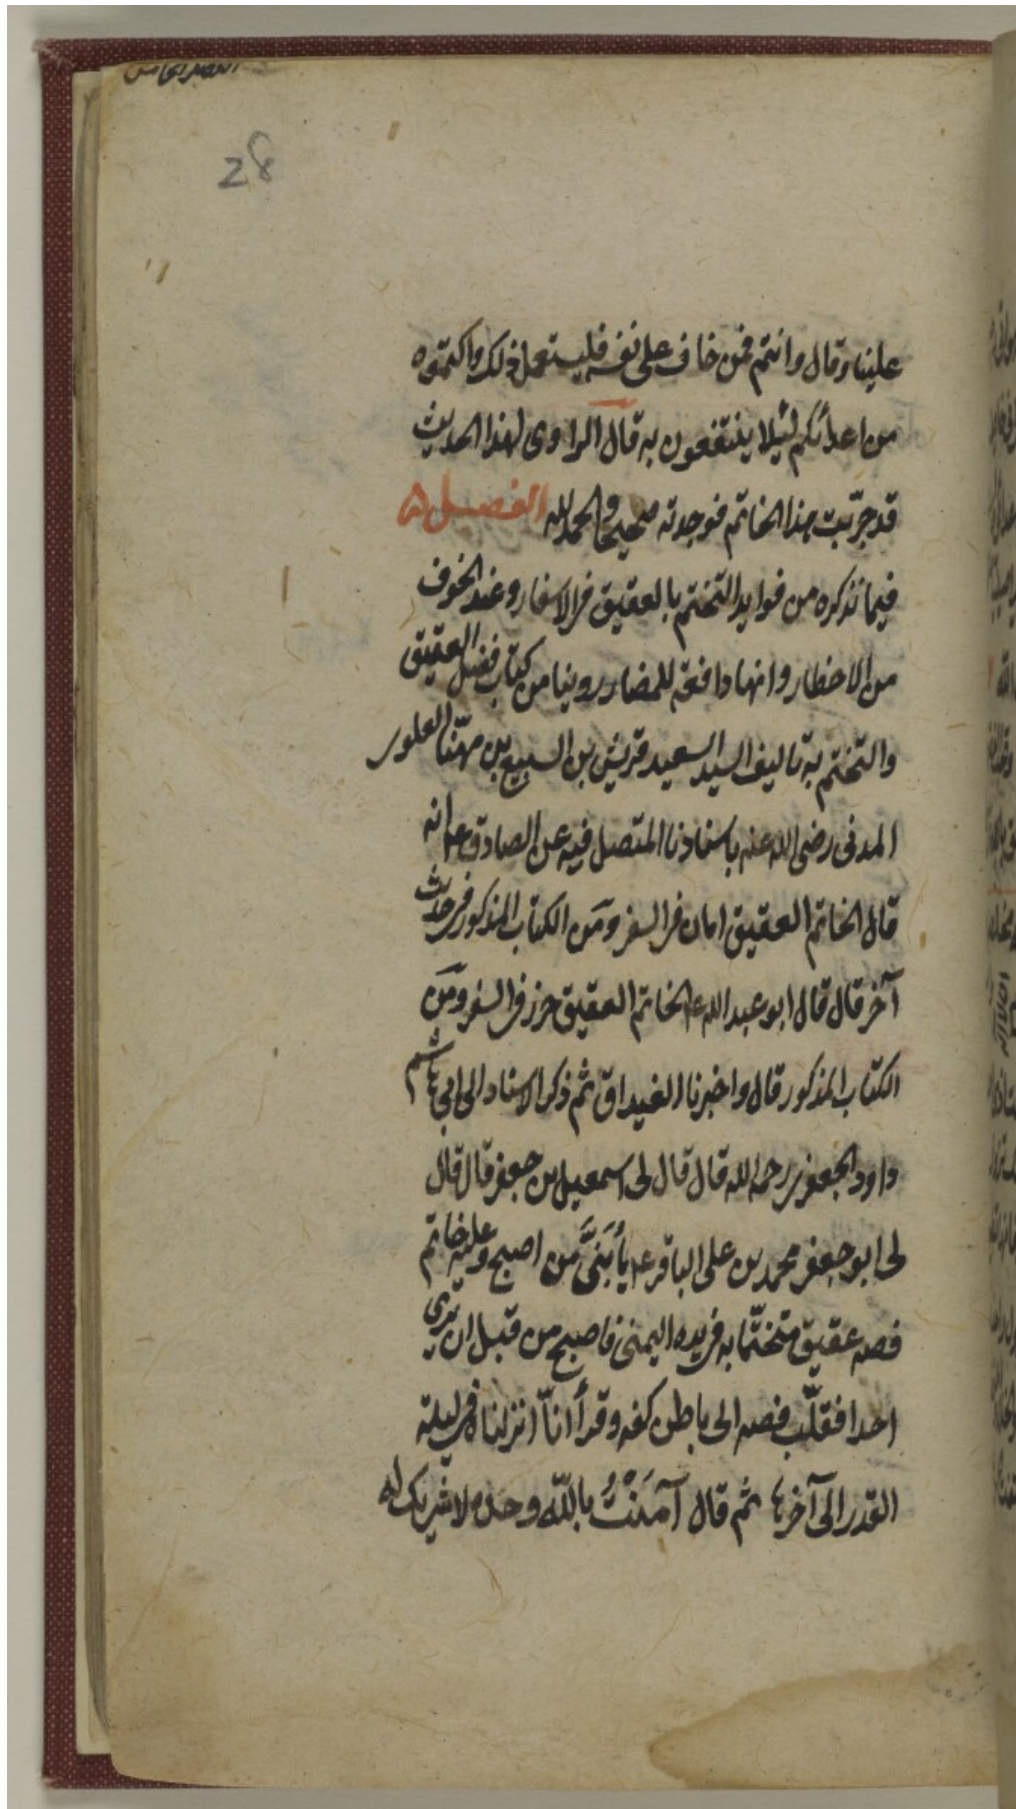 الفصل الخامس
28
علينا وقال وانتم فمن خاف على نفسه فليستعمل ذلك واكتموه
من اعدائكم لئيلا ينتفعون به قال الراوى لهذا الحديث
قد جرّبت هذا الخاتم فوجدته صحيحا والحمد لله الفصل ۵
فيما نذكره من فوايد التختم بالعقيق فى الاسفار وعند الخوف
من الاخطار وانها دافعة للمضار روينا من كتاب فضل العقيق
والتختم به تاليف السيد السعيد قريش بن السبيع بن مهنّا العلوى
المدنى رضى الله عنه باسنادنا المتصل فيه عن الصادق ع انه
قال الخاتم العقيق امان فى السفر ومن الكتاب المذكور فى حديث
آخر قال قال ابو عبد الله ع الخاتم العقيق حرز فى السفر ومن
الكتاب المذكور قال واخبرنا الغيداق ثم ذكر الاسناد الى ابى هاشم
داود الجعفرى رحمه الله قال قال لى اسمعيل بن جعفر قال قال
لى ابو جعفر محمد بن على الباقر ع يا بنىّ من اصبح وعليه خاتم
فصه عقيق متختّما به فى يده اليمنى فاصبح من قبل ان يرى
احدا فقلّب فصه الى باطن كفه وقرأ انّا انزلناه فى ليلة
القدر الى آخرها ثم قال آمَنْتُ بالله وحده لا شريك له